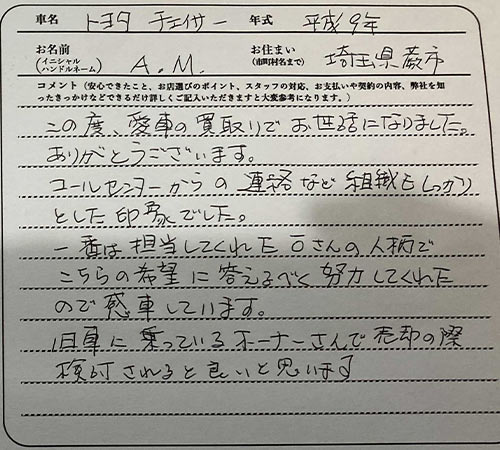 車名 トヨタ チェイサー 年式 平成9年
お名前 (イニシャル ハンドルネーム) A.M. お住まい (市町村名まで) 埼玉県蕨市
コメント (安心できたこと、お店選びのポイント、スタッフの対応、お支払いや契約の内容、弊社を知
ったきっかけなどできるだけ詳しくご記入いただきますと大変参考になります。)
この度、愛車の買取りでお世話になりました。
ありがとうございます。
コールセンターからの連絡など組織もしっかり
とした印象でした。
一番は担当してくれた さんの人柄で
こちらの希望に答えるべく努力してくれた
ので感車しています。
旧車に乗っているオーナーさんで売却の際
検討されると良いと思います